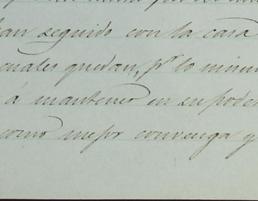 han seguido con la casa
cuales quedan, pr lo
á mantener en su poder
como mejor convenga y